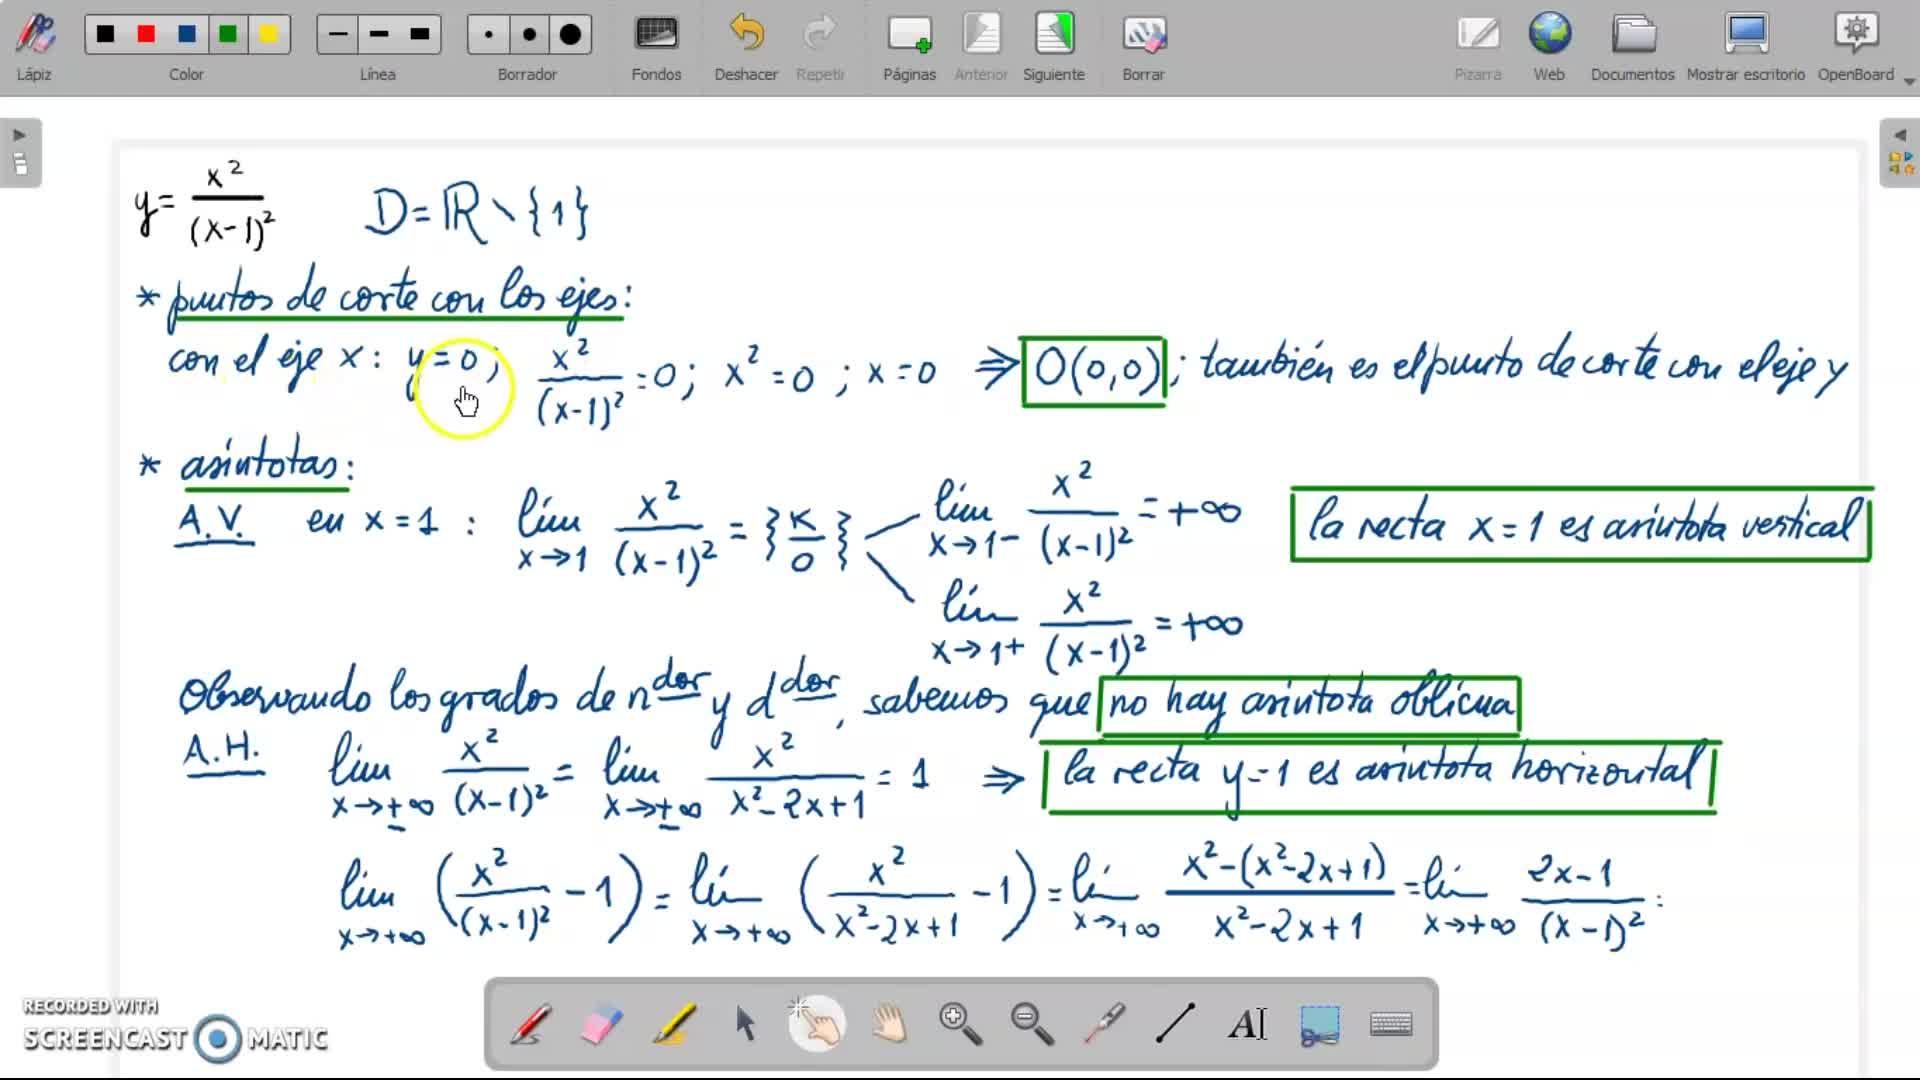 Lápiz Color Línea Borrador Fondos Deshacer Repetir Páginas Anterior Siguiente Borrar Pizarra Web Documentos Mostrar escritorio OpenBoard
y = x² / (x-1)²   D = ℝ \ {1}
* puntos de corte con los ejes:
con el eje x: y = 0; x² / (x-1)² = 0; x² = 0; x = 0 ⇒ O(0,0); también es el punto de corte con el eje y
* asíntotas:
A.V. en x = 1 : lím x→1 x² / (x-1)² = {K/0} lím x→1- x² / (x-1)² = +∞ la recta x = 1 es asíntota vertical
lím x→1+ x² / (x-1)² = +∞
Observando los grados de n dor y d dor, sabemos que no hay asíntota oblicua
A.H. lím x→±∞ x² / (x-1)² = lím x→±∞ x² / x²-2x+1 = 1 ⇒ la recta y = 1 es asíntota horizontal
lím x→+∞ (x² / (x-1)² - 1) = lím x→+∞ (x² / x²-2x+1 - 1) = lím x→+∞ x²-(x²-2x+1) / x²-2x+1 = lím x→+∞ 2x-1 / (x-1)² :
RECORDED WITH
SCREENCAST MATIC
AI